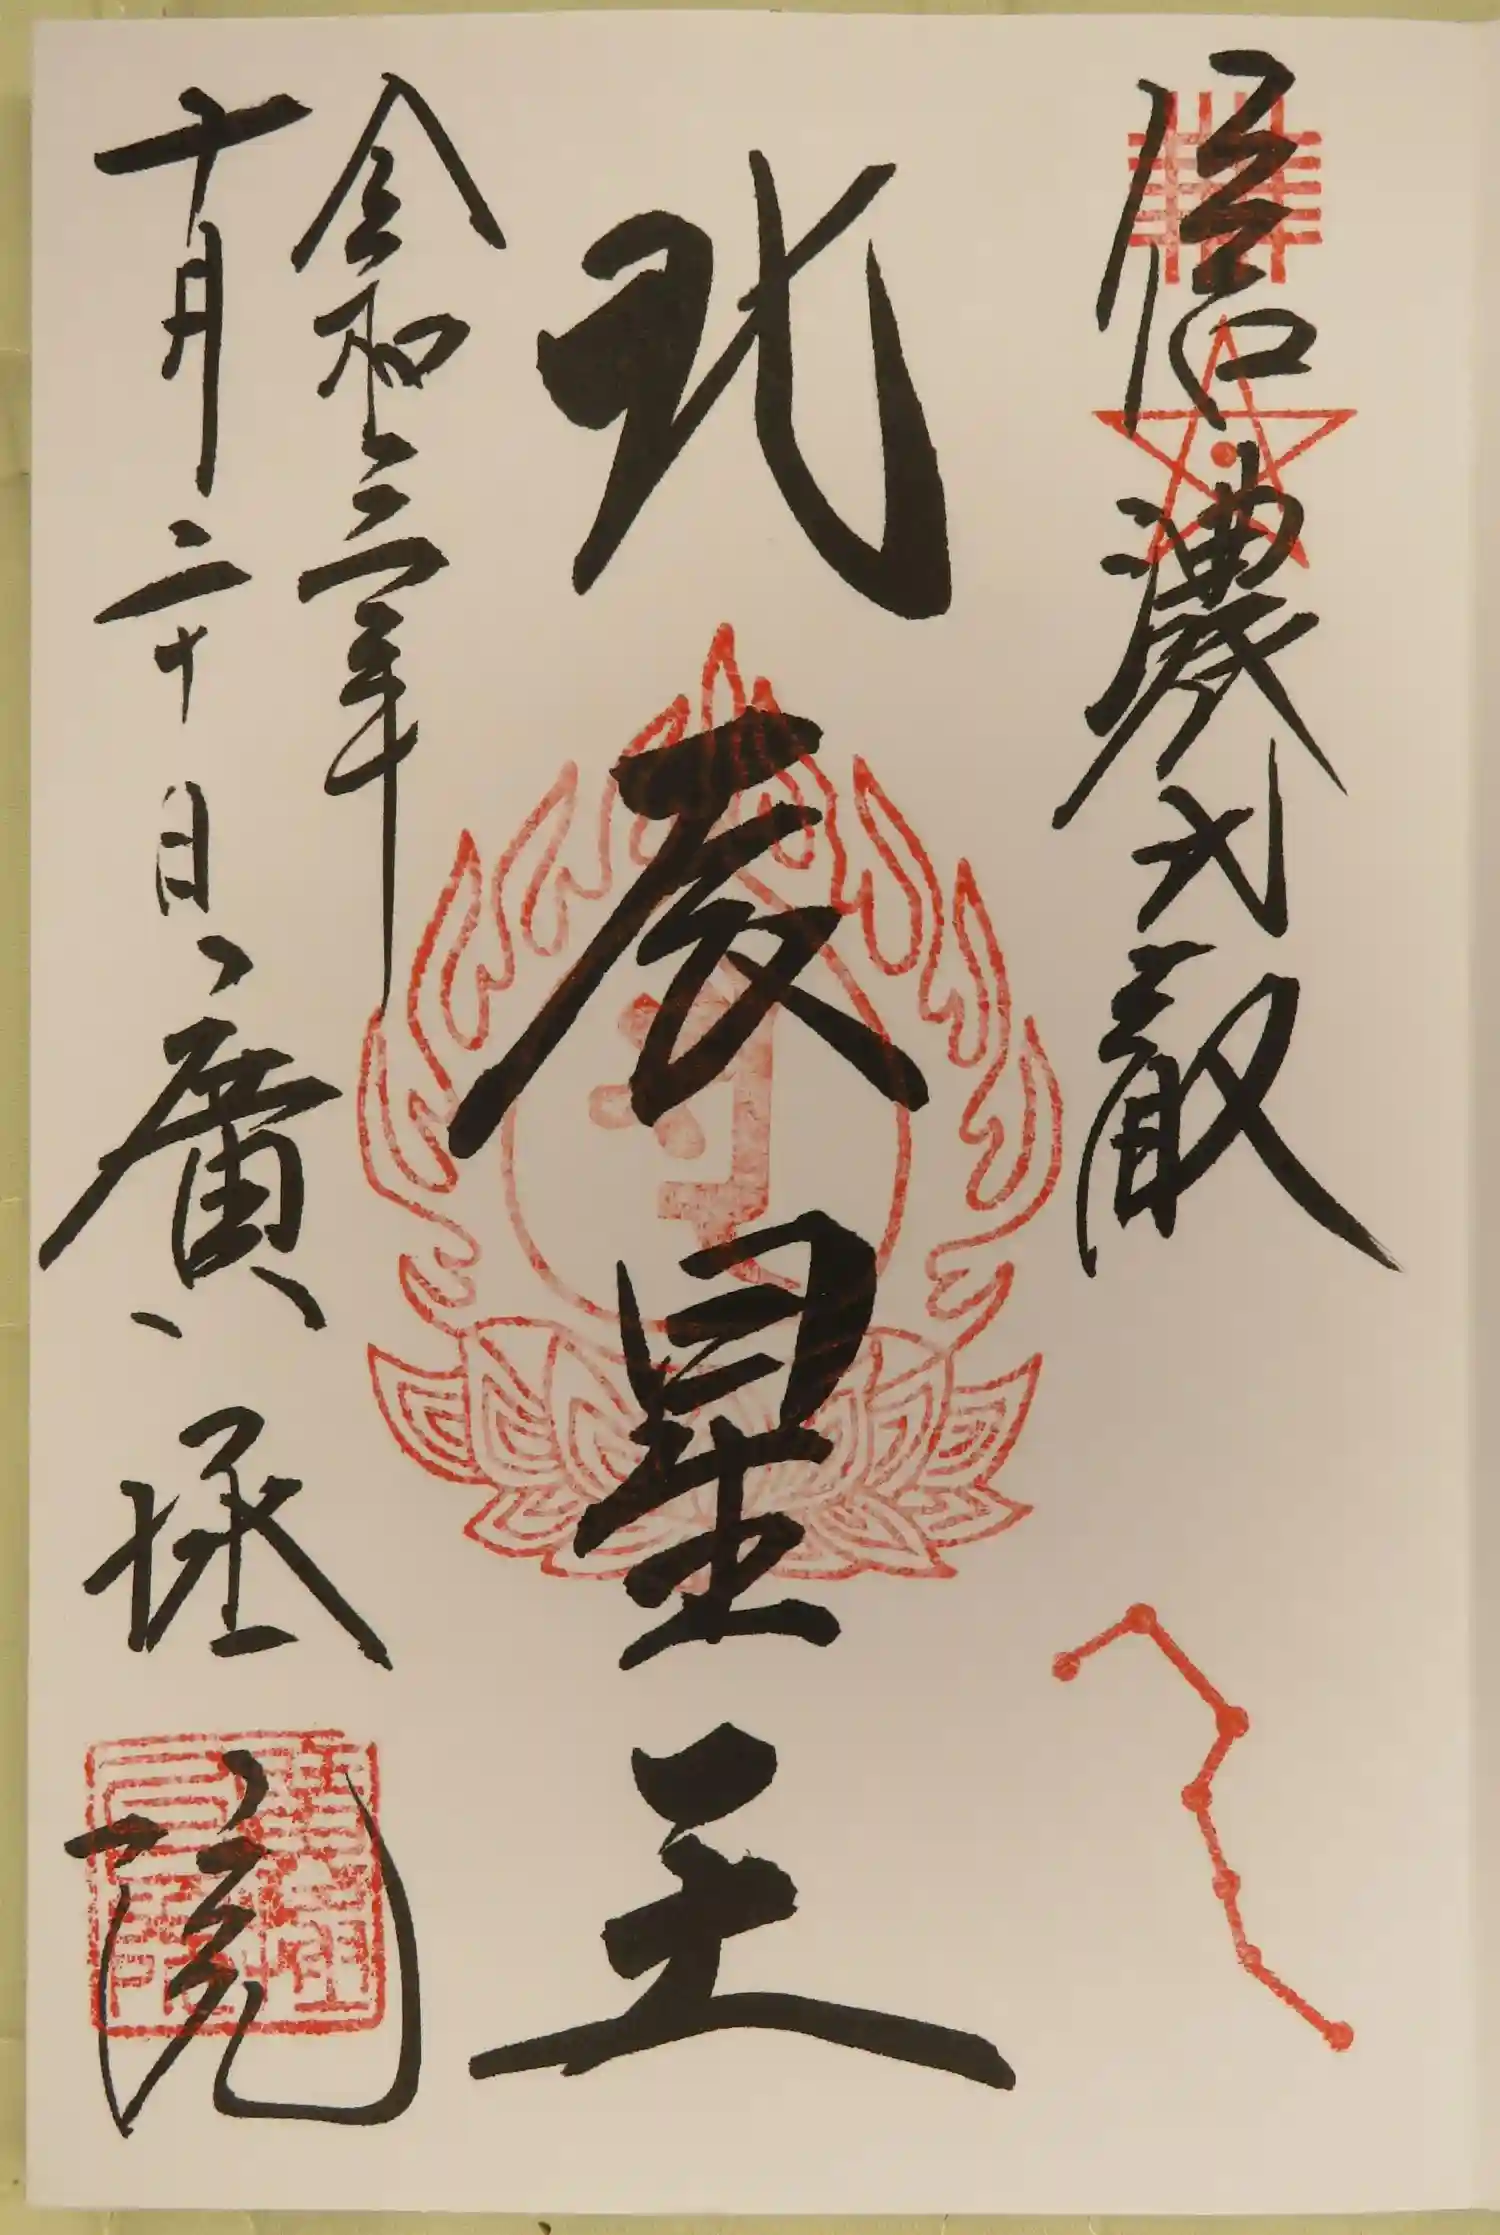 信濃比叡
北辰星王
令和三年
十月二十日 廣拯院